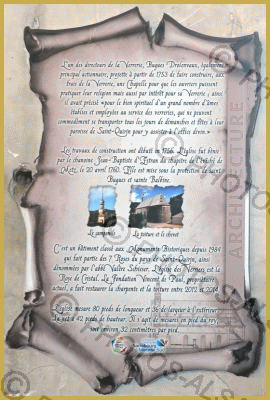 L'un des directeurs de la Verrerie, Hugues Drolenvaux, également
principal actionnaire, projette à partir de 1753 de faire construire, aux
frais de la Verrerie, une Chapelle pour que les ouvriers puissent
pratiquer leur religion mais aussi par intérêt pour la Verrerie ; ainsi
il avait précisé «pour le bien spirituel d'un grand nombre d'âmes
établies et employées au service des verreries, qui ne peuvent
commodément se transporter tous les jours de dimanches et fêtes à leur
paroisse de Saint-Quirin pour y assister à l'office divin.»
Les travaux de construction ont débuté en 1756. L'église fut bénie
par le chanoine Jean-Baptiste d'Estran du chapitre de l'évêché de
Metz, le 20 avril 1760. Elle est mise sous la protection de saint
Hugues et sainte Balbine.
Le campanile
La toiture et le chevet
C'est un bâtiment classé aux Monuments Historiques depuis 1984
qui fait partie des 7 Roses du pays de Saint-Quirin, ainsi
dénommées par l'abbé Walter Schisser. L'église des Verriers est la
Rose de Cristal. La Fondation Vincent de Paul, propriétaire
actuel, a fait restaurer la charpente et la toiture entre 2012 et 2014.
L'église mesure 80 pieds de longueur et 36 de largeur à l'extérieur
et 42 pieds de hauteur. Il s'agit de mesures en pied du roy,
soit environ 32 centimètres par pied.